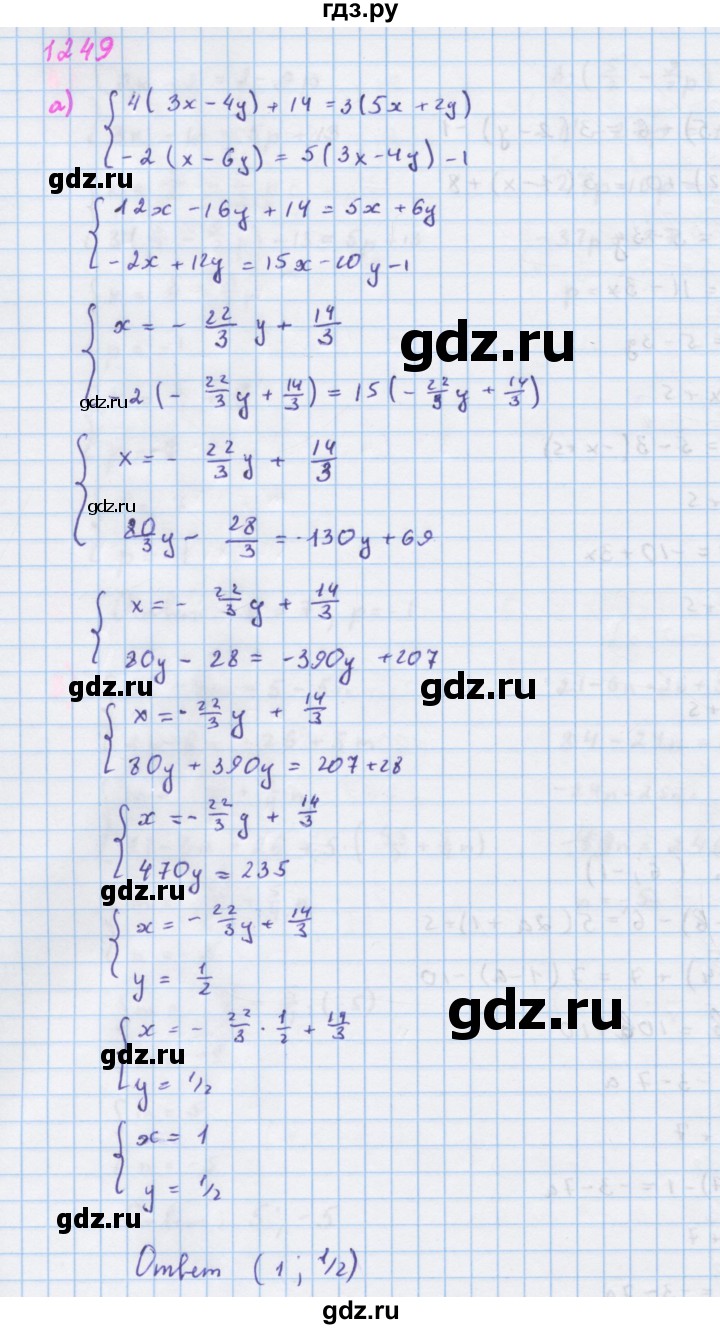 гдз.ру
1249
а) { 4(3x - 4y) + 14 = 3(5x + 2y)
-2(x - 6y) = 5(3x - 4y) - 1
gdz.ru
{ 12x - 16y + 14 = 5x + 6y
-2x + 12y = 15x - 20y - 1
{ x = - 22/3 y + 14/3
gdz.ru
-2(- 22/3 y + 14/3) = 15(- 22/3 y + 14/3)
gdz.ru
{ x = - 22/3 y + 14/3
gdz.ru
80/3 y - 28/3 = -130y + 69
{ x = - 22/3 y + 14/3
80y - 28 = -390y + 207
gdz.ru gdz.ru
{ x = - 22/3 y + 14/3
80y + 390y = 207 + 28
{ x = - 22/3 y + 14/3
470y = 235
gdz.ru
{ x = - 22/3 y + 14/3
y = 1/2
gdz.ru
{ x = - 22/3 · 1/2 + 14/3
gdz.ru
y = 1/2
{ x = 1
y = 1/2
gdz.ru
Ответ (1; 1/2)
gdz.ru